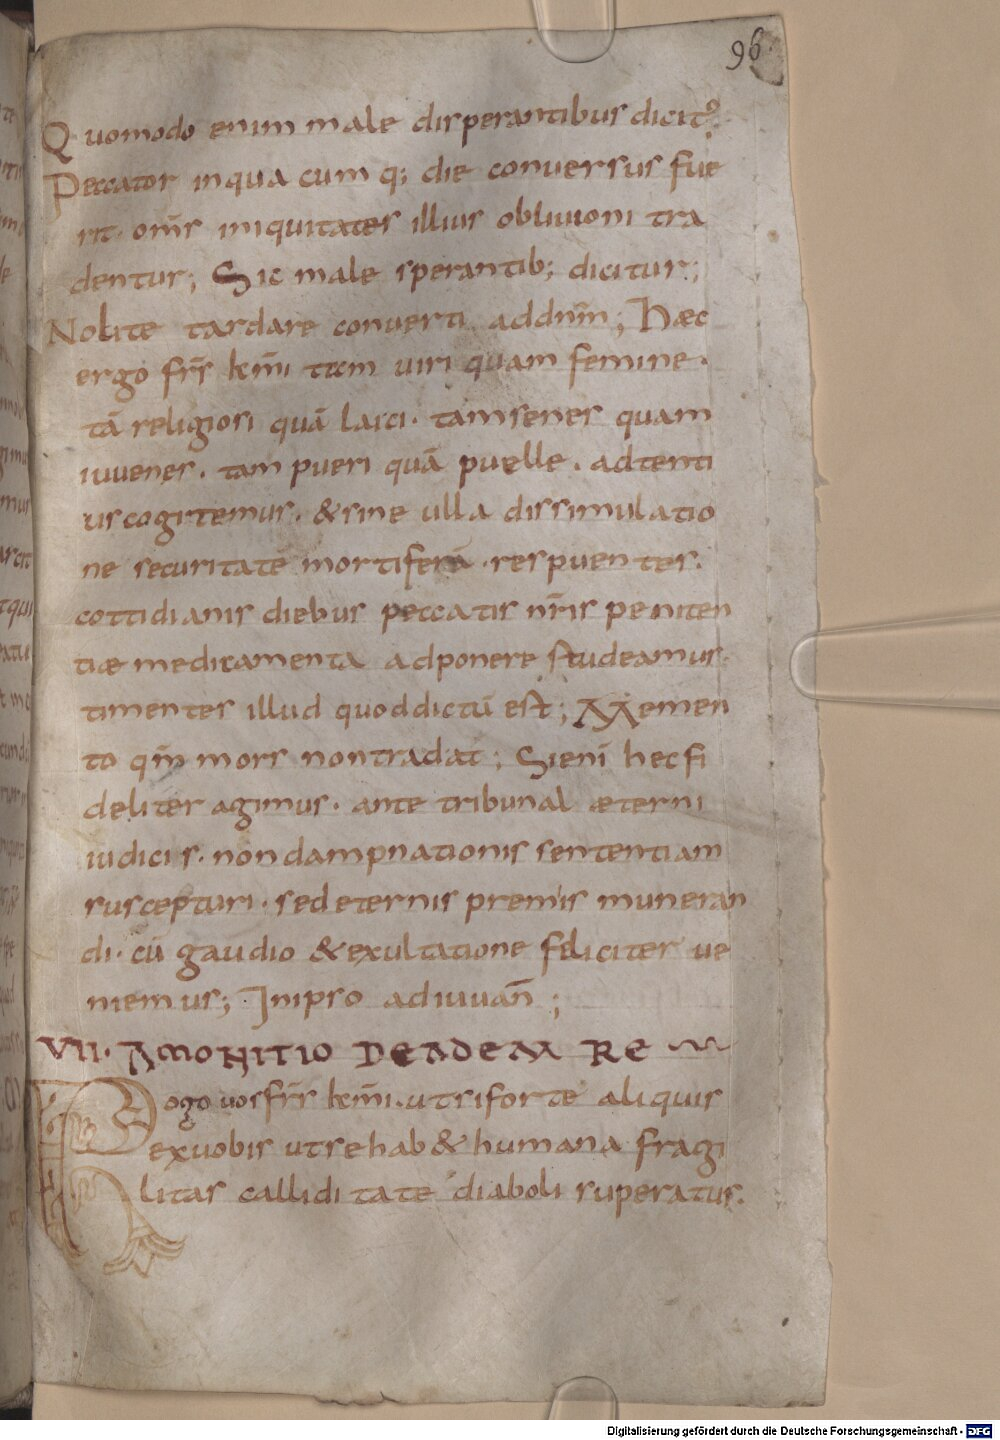 96
Quomodo enim male disperantibus dicit?
Peccator inqua cumq; die conversus fue
rit. oms̄ iniquitates illius oblivioni tra
dentur; Sic male sperantib; dicitur;
Nolite tardare converti addnm̄; Haec
ergo frs̄ kmi̅ tam viri quam femine.
tā religiosi quā laici. tam senes quam
iuvenes. tam pueri quā puelle. adtenti
us cogitemus. & sine ulla dissimulatio
ne securitatē mortiferā. respuentes.
cottidianis diebus peccatis nr̄is peniten
tiæ medicamenta adponere studeamus.
timentes illud quod dictū est; Memen
to qm̄ mors non tradat; Si enī hec fi
deliter agimus. ante tribunal æterni
iudicis. non dampnationis sententiam
suscepturi. sed eternis premiis muneran
di. cū gaudio & exultatione feliciter ve
niemus; Inipso adiuvan̄;
VII. AMONITIO DE EADEM RE
Rogo vos frs̄ kmi̅. ut si forte aliquis
ex vobis ut se hab& humana fragi
litas calliditate diaboli superatus.
Digitalisierung gefördert durch die Deutsche Forschungsgemeinschaft - DFG